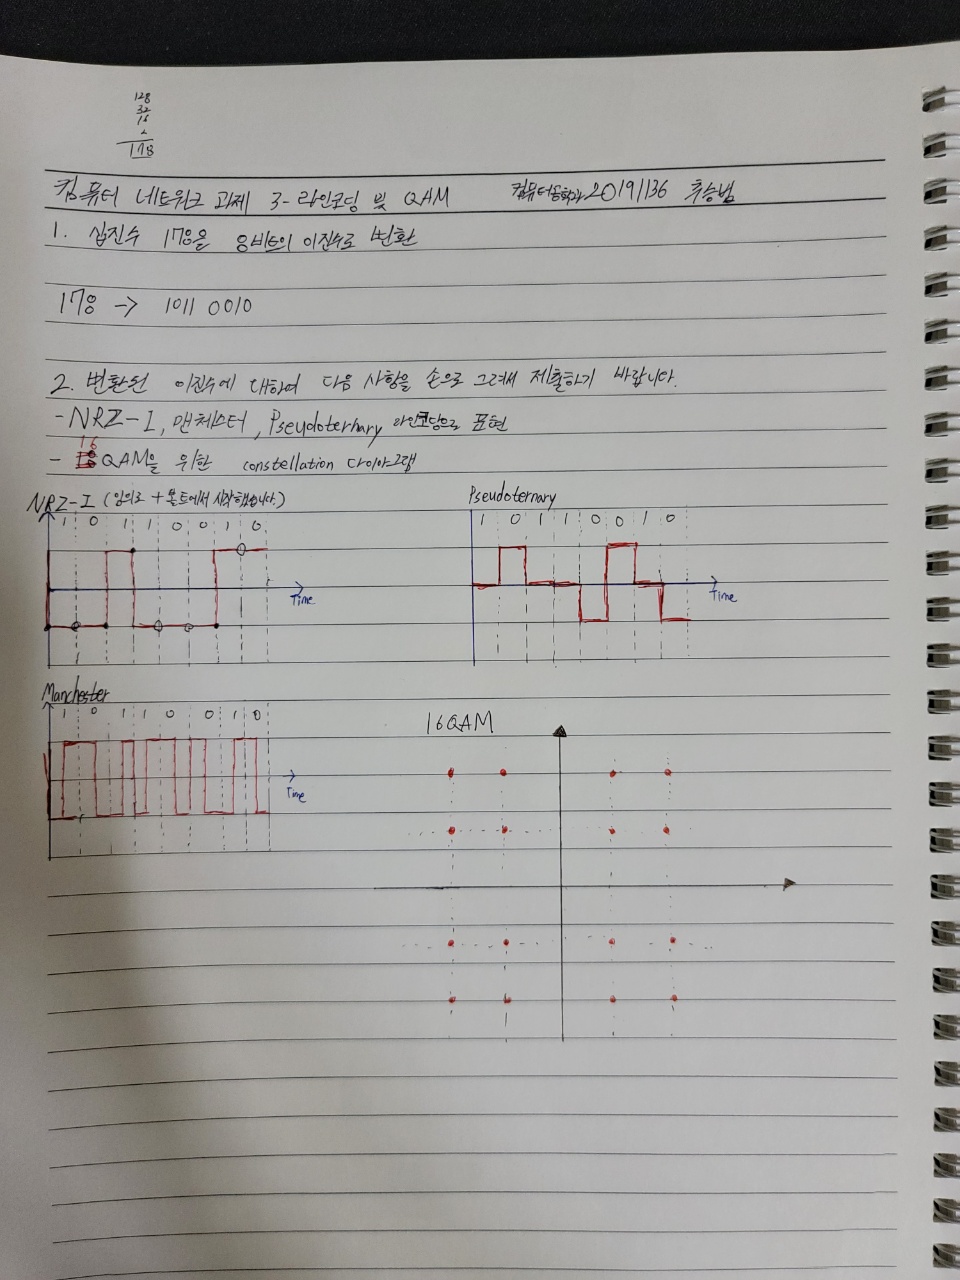 128
32
16
2
178
컴퓨터 네트워크 과제 3- 라인코딩 및 QAM 컴퓨터공학과 20191136 추승범
1. 십진수 178을 8비트의 이진수로 변환
178 -> 1011 0010
2. 변환된 이진수에 대하여 다음 사항을 손으로 그려서 제출하기 바랍니다.
- NRZ-I, 맨체스터, Pseudoternary 라인코딩으로 표현
- 16 QAM을 위한 constellation 다이아그램
NRZ-I (임의로 + 볼트에서 시작했습니다.)
1 0 1 1 0 0 1 0
Time
Pseudoternary
1 0 1 1 0 0 1 0
Time
Manchester
1 0 1 1 0 0 1 0
Time
16QAM